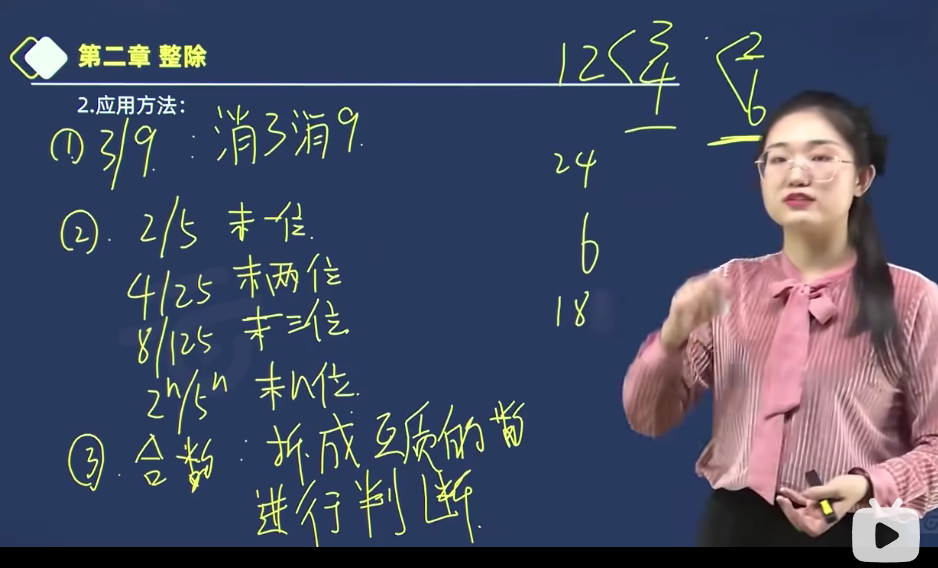 第二章 整除
2.应用方法：
① 3/9：消3消9
② 2/5 末一位
4/25 末两位
8/125 末三位
2ⁿ/5ⁿ 末n位
③ 合数：拆成互质的数
进行判断
12< 3 4
< 2 6
24
6
18